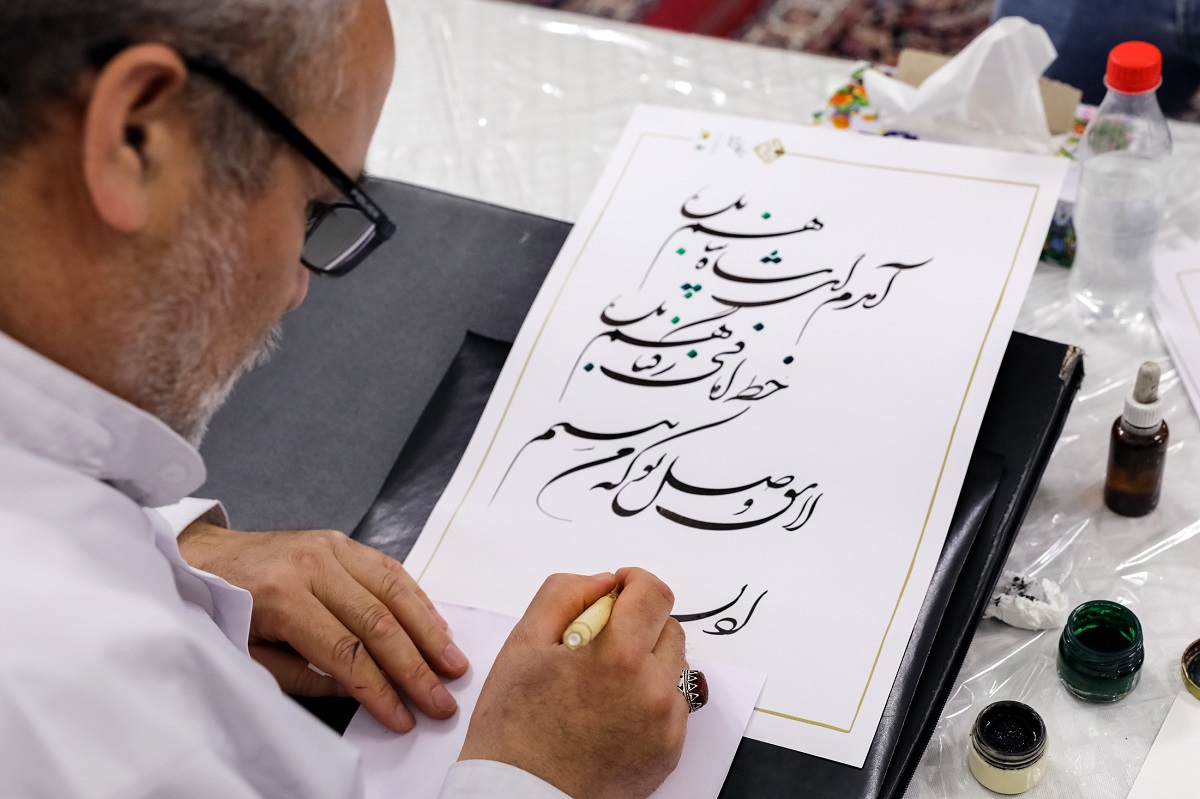 آمدم ای شاه پناهم بده
خط امانی ز گناهم بده
لایق وصل تو که من نیستم
اذن